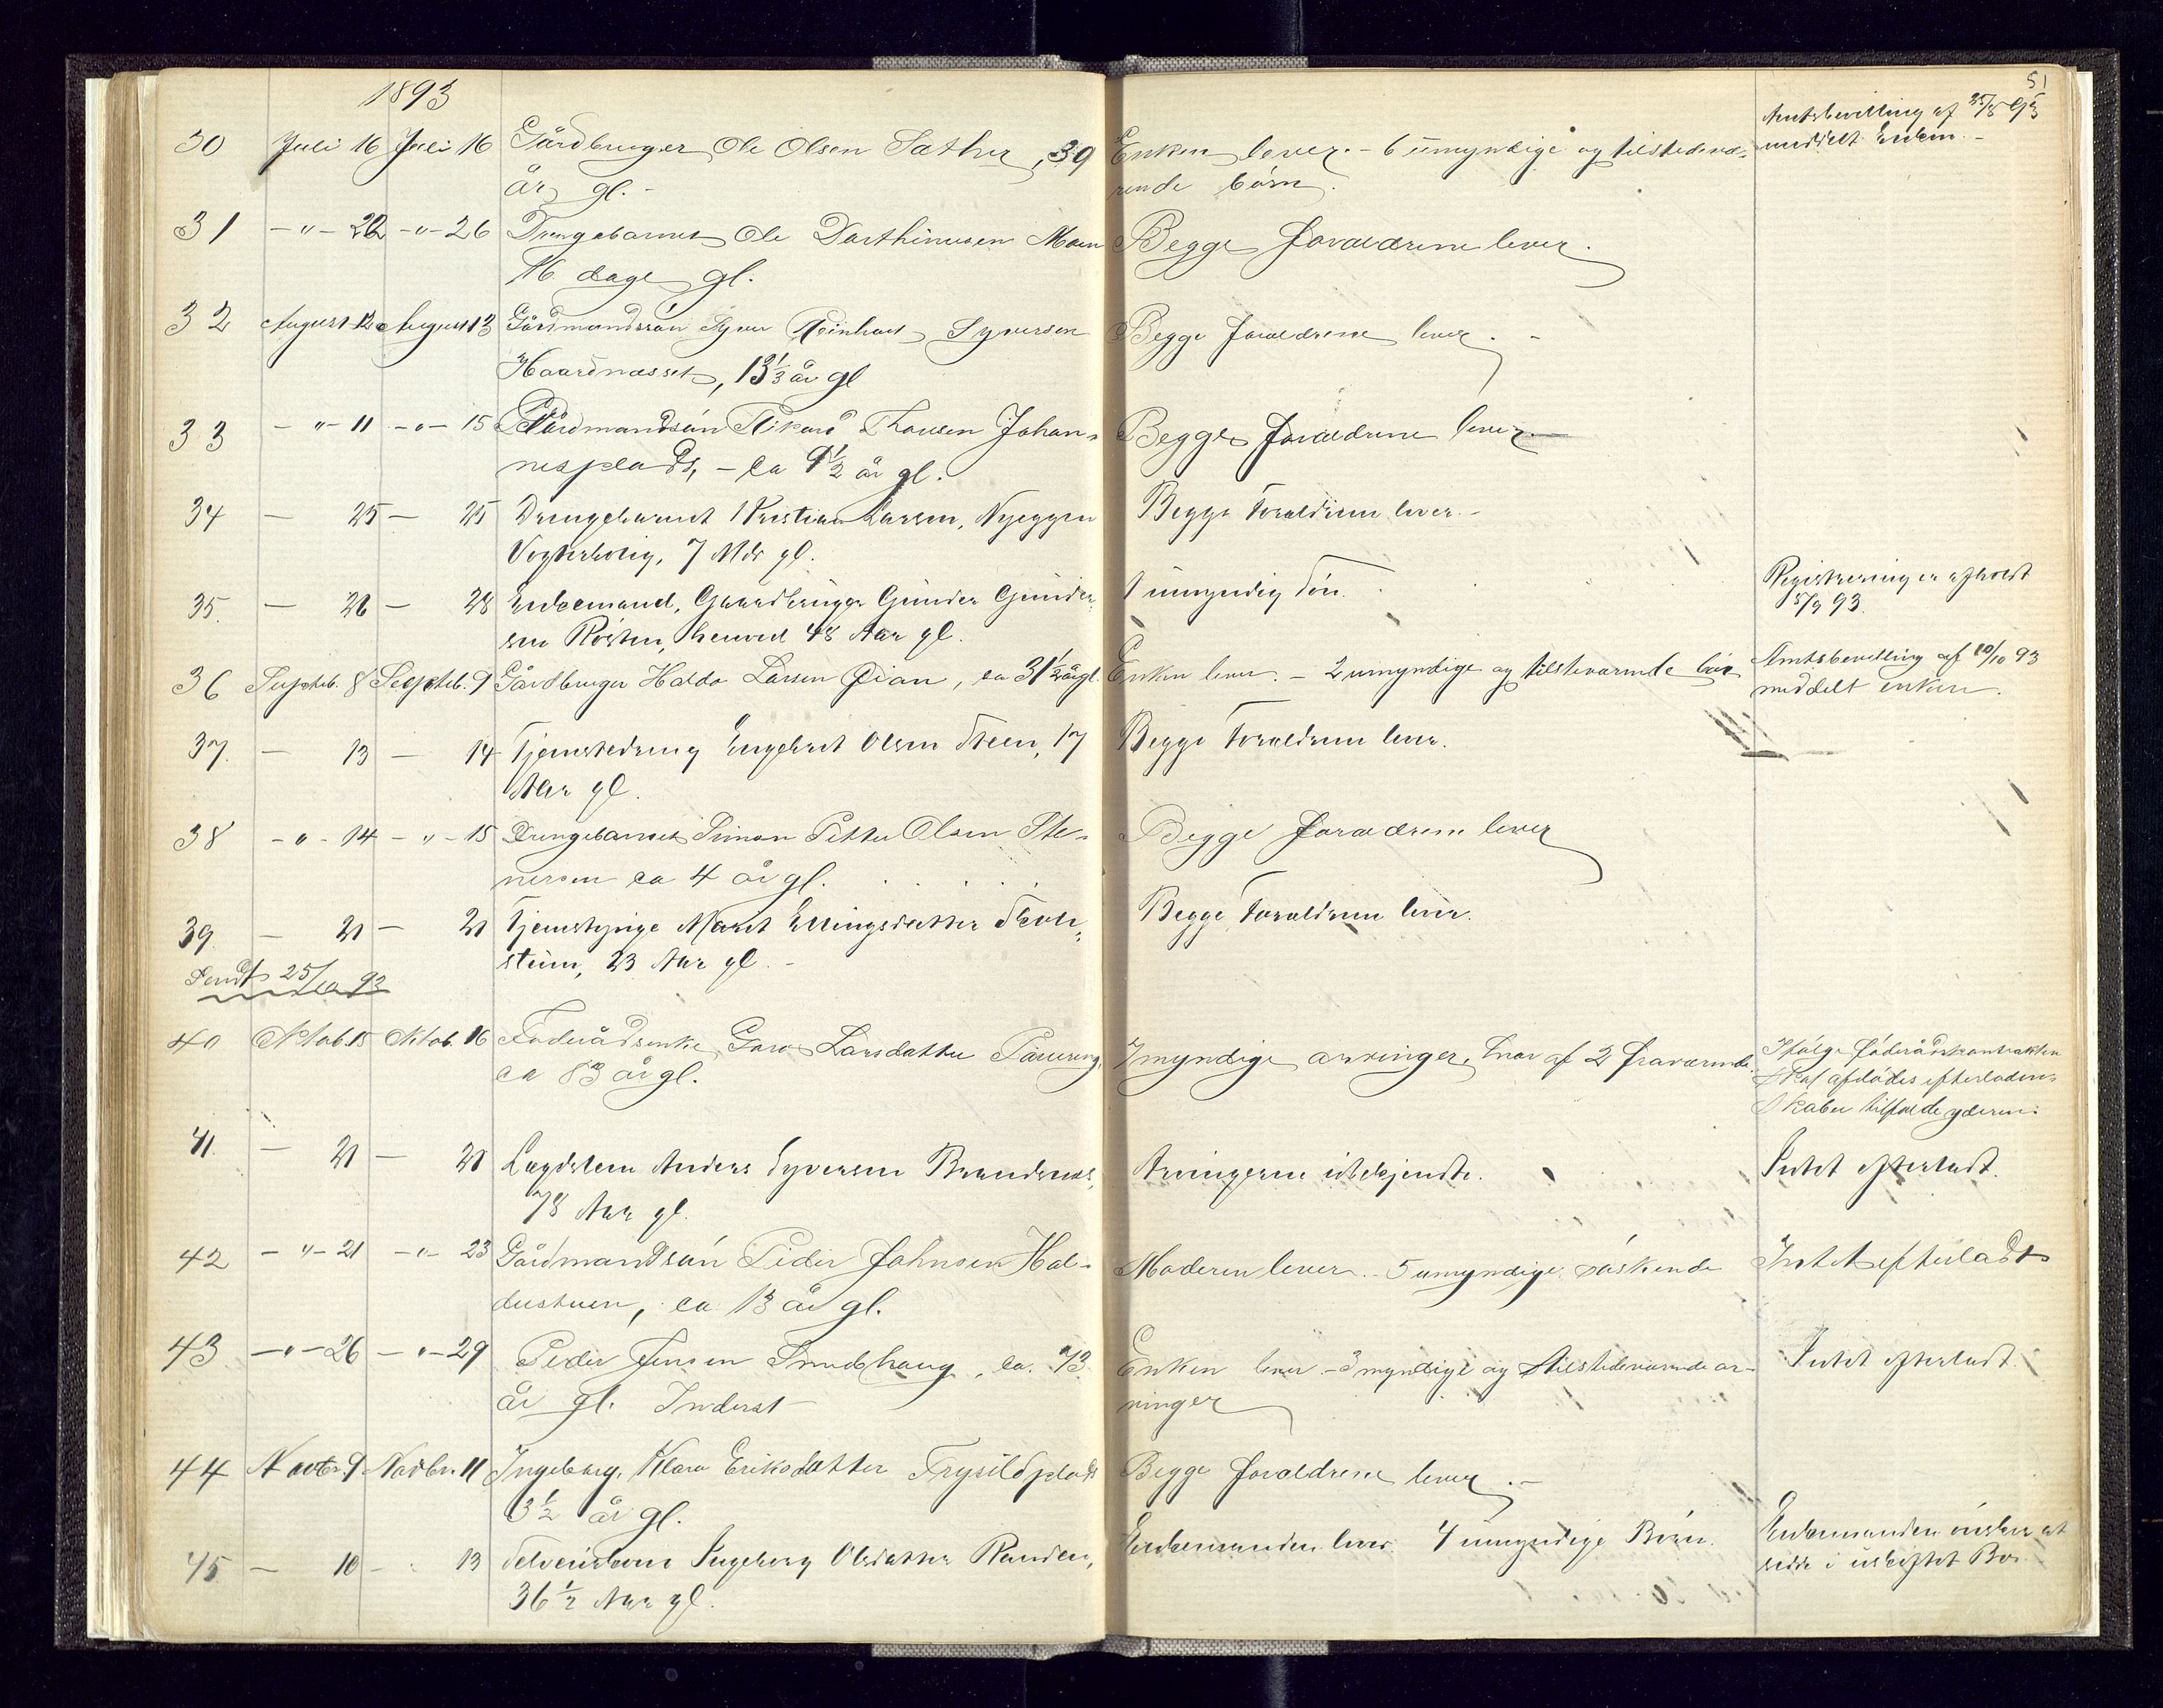 1893
51
30 Juli 16 Juli 16 Gårdbruger Ole Olsen Sæther, 39
år gl. -
Enken lever. - 6 umyndige og tilstedevæ-
rende börn.
Amtsbevilling af 25/8 93
meddelt Enken. -
31 - " - 22 - " - 26 Drengebarnet Ole Dorthinusen Moen
16 dage gl.
Begge forældrene lever.
32 August 12 August 13 Gårdmandssön Syver Reinhart Syversen
Haardnæsset, 13 1/3 år gl
Begge forældrene lever. -
33 - " - 11 - " - 15 Gårdmandssön Rikard Thorsen Johan-
nesplads, - ca 9 1/2 år gl.
Begge forældrene lever. -
34 - 25 - 25 Drengebarnet Kristian Larsen, Nyeggen
Vogterbolig, 7 Mdr gl.
Begge Forældrene lever. -
35. - 26 - 28 Enkemand, Gaardbruger Gunder Gunder-
sen Rösten, henved 48 Aar gl.
1 umyndig Sön.
Registrering er afholdt
5/9 93.
36 Septeb. 8 Septeb. 9 Gårdbruger Haldo Larsen Öian, ca 31 1/2 år gl.
Enken lever. - 2 umyndige og tilsteværende bör
Amtsbevilling af 10/10 93
meddelt enken.
37. - 13 - 14 Tjenestedreng Engebret Olsen Steen, 17
Aar gl.
Begge Forældrene lever.
38 - " - 14 - " - 15 Drengebarnet Simon Petter Olsen Ste-
nersen ca 4 år gl.
Begge forældrene lever
39. - 21 - 21 Tjenestepige Marit Ellingsdatter
stuen, 23 Aar gl. -
Begge Forældrene lever.
Sendt 25/10 93
40 Oktob. 15 Oktob. 16 Foderådsenke Goro Larsdatter
ca 83 år gl.
7 myndige arvinger, hvor af 2 fraværende.
Ifölge föderådskontrakten
skal afdödes efterladen-
skaber tilfalde yderen.
41. - 21 - 21 Lægdslem Anders Syversen Brandsnes,
78 Aar gl.
Arvingerne ubekjendte.
Intet efterladt.
42 - " - 21 - " - 23 Gårdmandssön Peder Johnsen Hal-
dustuen, ca 13 år gl.
Moderen lever. - 5 umyndige söskende
Intet efterladt
43 - " - 26 - " - 29 Peder Jensen Smedhaug, ca. 73
år gl. Inderst
Enken lever - 3 myndige og tilstedeværende ar-
vinger
Intet efterladt.
44 Novbr. 9 Novbr. 11 Ingeborg Klara Eriksdatter Trysilsplads
3 1/2 år gl.
Begge forældrene lever. -
45 - 10 - 13 Selveierkone Ingeborg Olsdatter Randen,
36 1/2 Aar gl.
Enkemanden lever. 4 umyndige Börn.
Enkemanden önsker at
sidde i uskiftet Bo